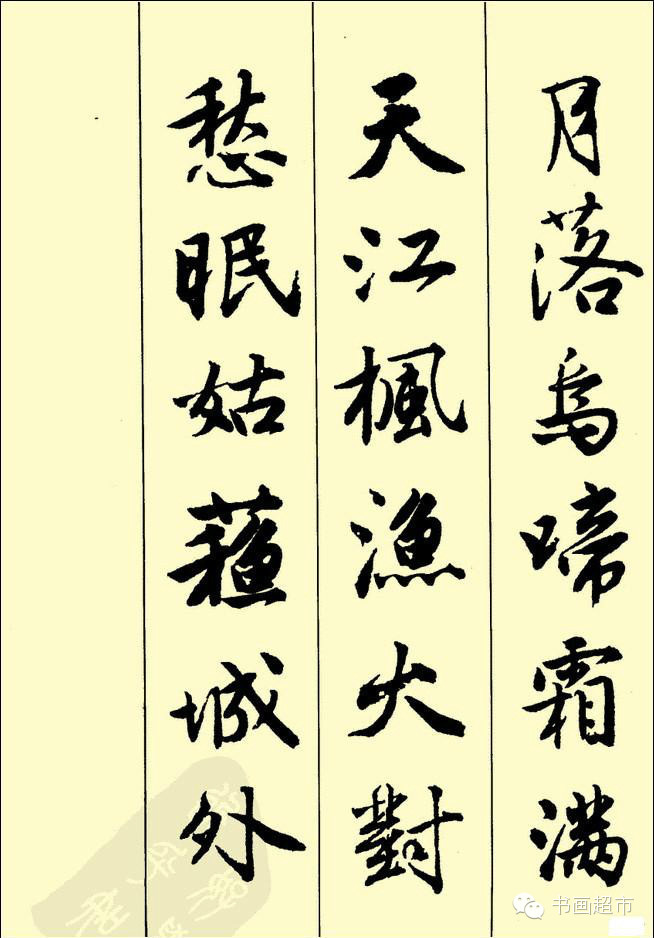 月落烏啼霜满
天江楓漁火對
愁眠姑蘇城外
书画超市